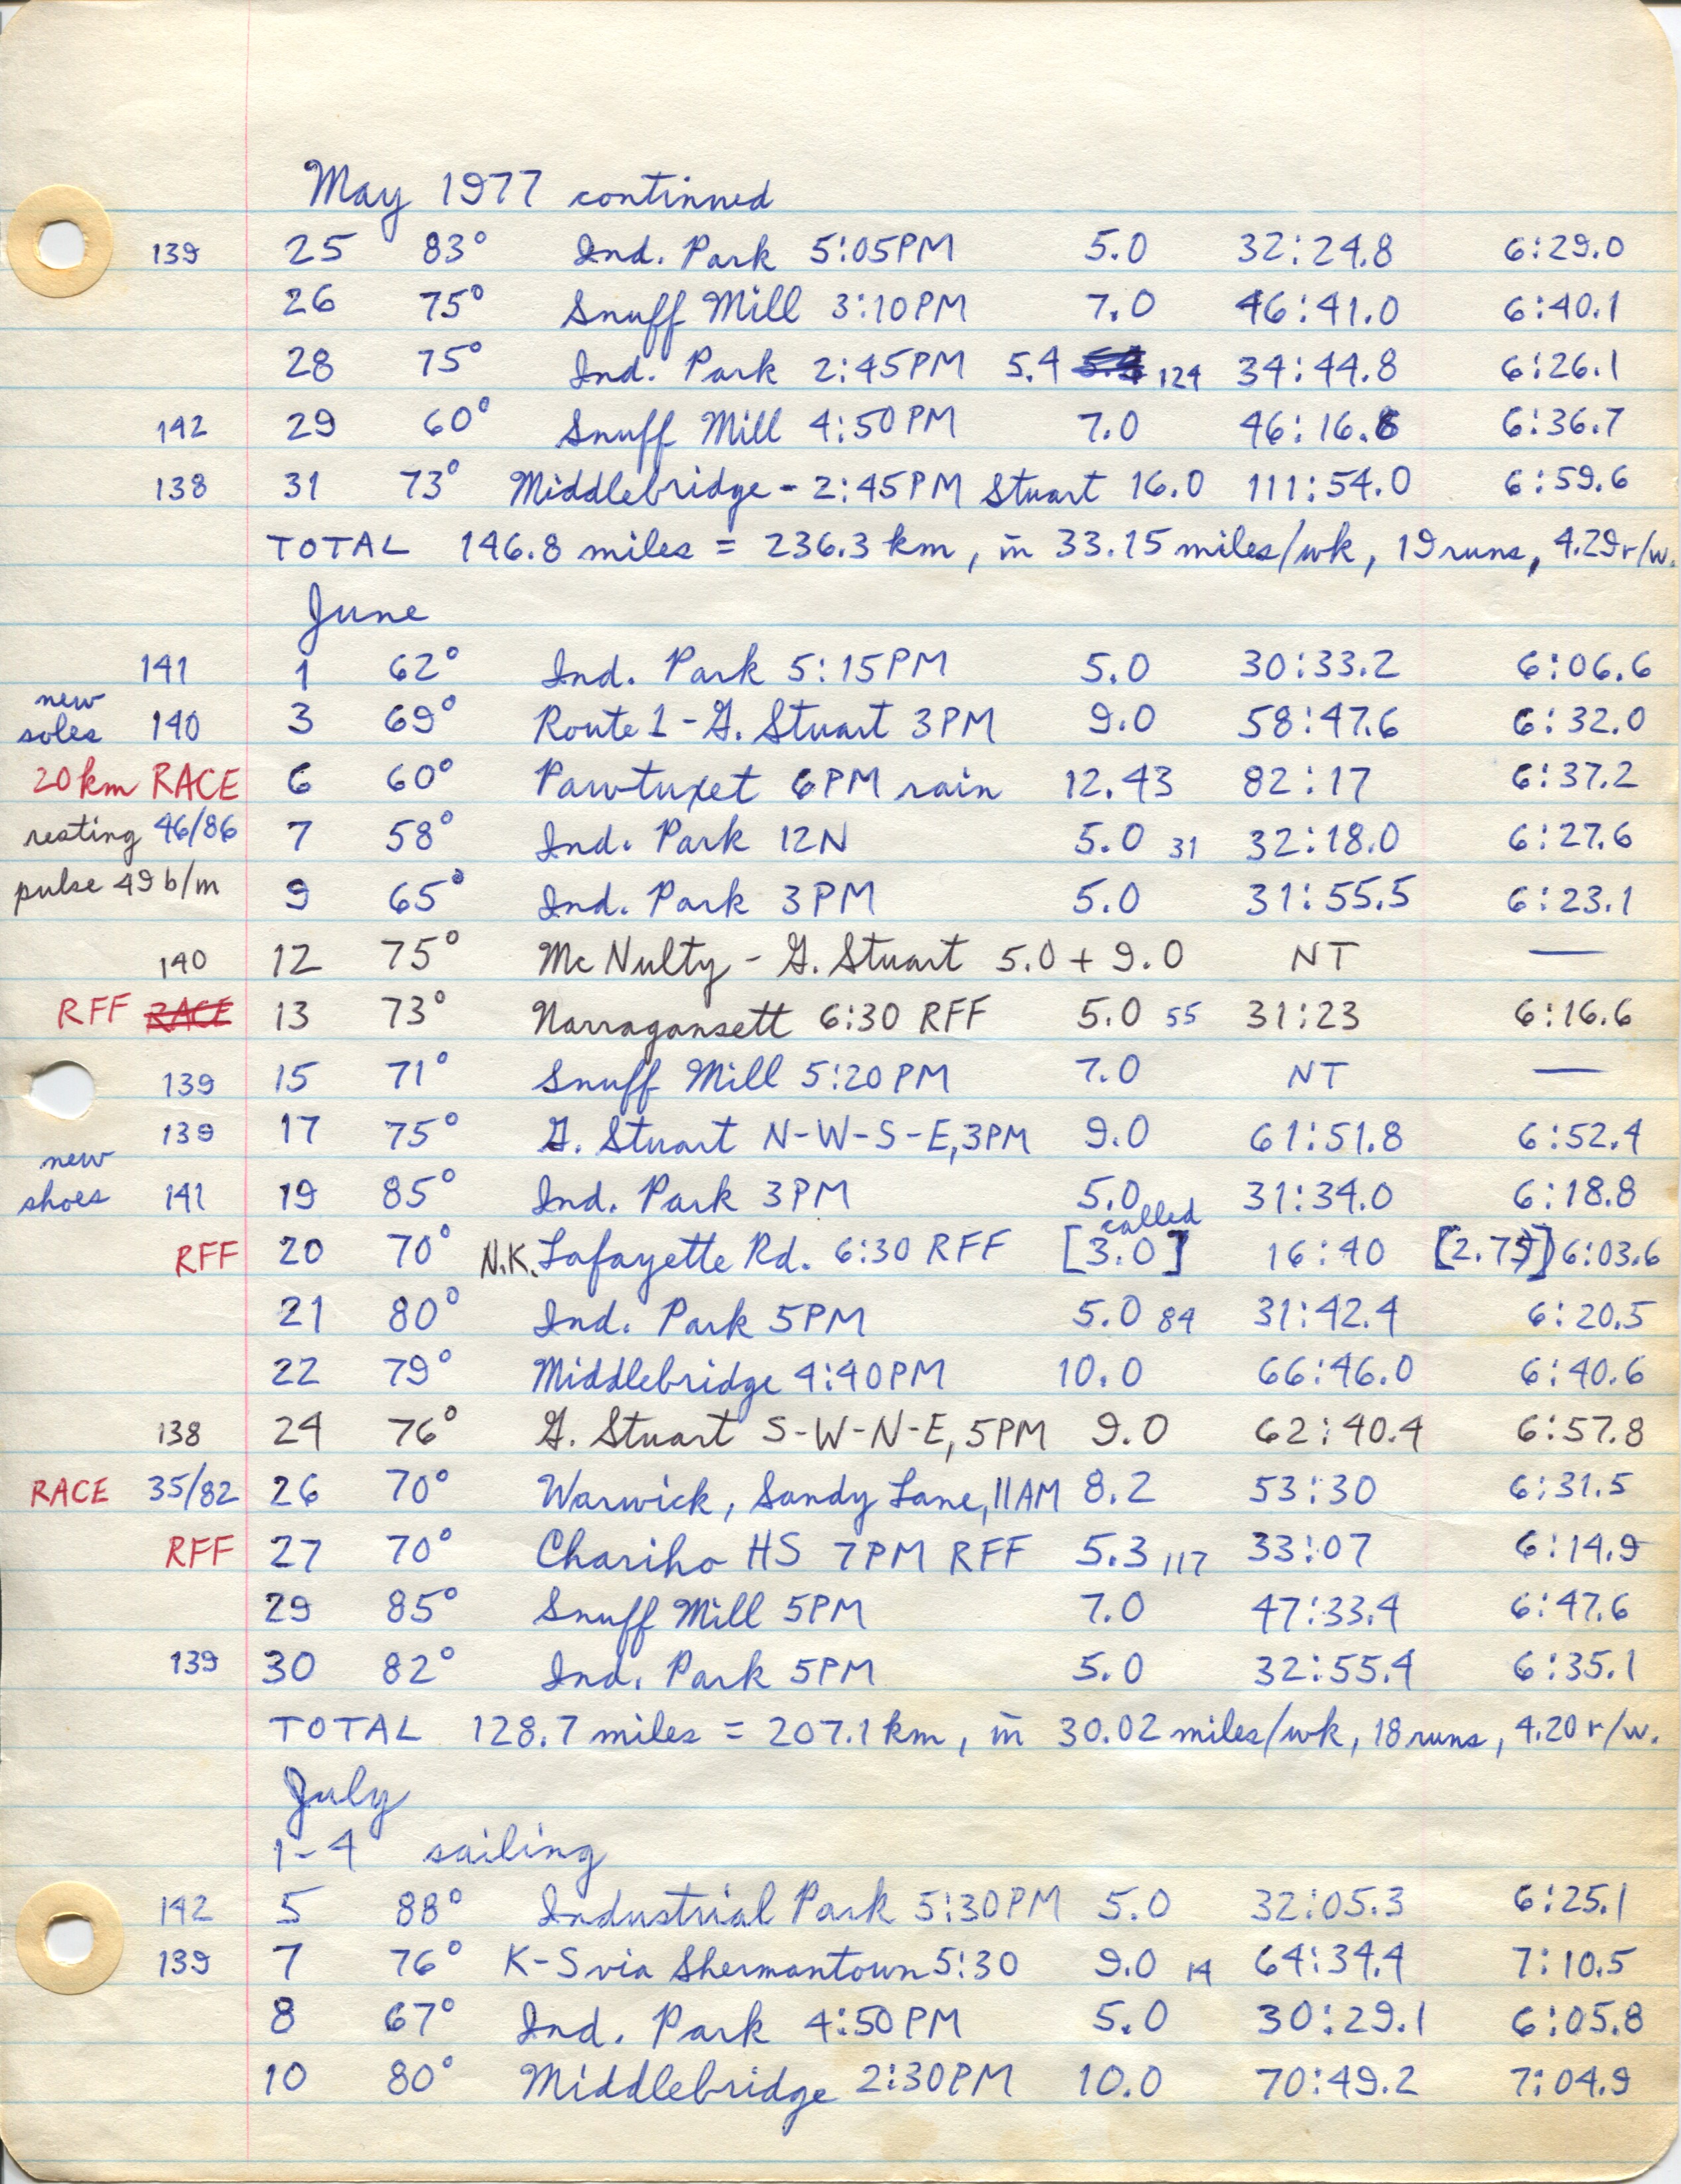 May 1977 continued
139 25 83° Ind. Park 5:05PM 5.0 32:24.8 6:29.0
26 75° Snuff Mill 3:10PM 7.0 46:41.0 6:40.1
28 75° Ind. Park 2:45PM 5.4 124 34:44.8 6:26.1
142 29 60° Snuff Mill 4:50PM 7.0 46:16.8 6:36.7
138 31 73° Middlebridge - 2:45PM Stuart 16.0 111:54.0 6:59.6
TOTAL 146.8 miles = 236.3 km, in 33.15 miles/wk, 19 runs, 4.29 r/w.
June
141 1 62° Ind. Park 5:15PM 5.0 30:33.2 6:06.6
new
soles 140 3 69° Route 1 - G. Stuart 3PM 9.0 58:47.6 6:32.0
20 km RACE 6 60° Pawtuxet 6PM rain 12.43 82:17 6:37.2
resting 46/86 7 58° Ind. Park 12N 5.0 31 32:18.0 6:27.6
pulse 49 b/m 9 65° Ind. Park 3PM 5.0 31:55.5 6:23.1
140 12 75° McNulty - G. Stuart 5.0 + 9.0 NT —
RFF RACE 13 73° Narragansett 6:30 RFF 5.0 55 31:23 6:16.6
139 15 71° Snuff Mill 5:20PM 7.0 NT —
139 17 75° G. Stuart N-W-S-E, 3PM 9.0 61:51.8 6:52.4
new
shoes 141 19 85° Ind. Park 3PM 5.0 31:34.0 6:18.8
called
RFF 20 70° N.K. Lafayette Rd. 6:30 RFF [3.0] 16:40 [2.75] 6:03.6
21 80° Ind. Park 5PM 5.0 84 31:42.4 6:20.5
22 79° Middlebridge 4:40PM 10.0 66:46.0 6:40.6
138 24 76° G. Stuart S-W-N-E, 5PM 9.0 62:40.4 6:57.8
RACE 35/82 26 70° Warwick, Sandy Lane, 11AM 8.2 53:30 6:31.5
RFF 27 70° Chariho HS 7PM RFF 5.3 117 33:07 6:14.9
29 85° Snuff Mill 5PM 7.0 47:33.4 6:47.6
139 30 82° Ind. Park 5PM 5.0 32:55.4 6:35.1
TOTAL 128.7 miles = 207.1 km, in 30.02 miles/wk, 18 runs, 4.20 r/w.
July
1-4 sailing
142 5 88° Industrial Park 5:30PM 5.0 32:05.3 6:25.1
139 7 76° K-S via Shermantown 5:30 9.0 14 64:34.4 7:10.5
8 67° Ind. Park 4:50PM 5.0 30:29.1 6:05.8
10 80° Middlebridge 2:30PM 10.0 70:49.2 7:04.9